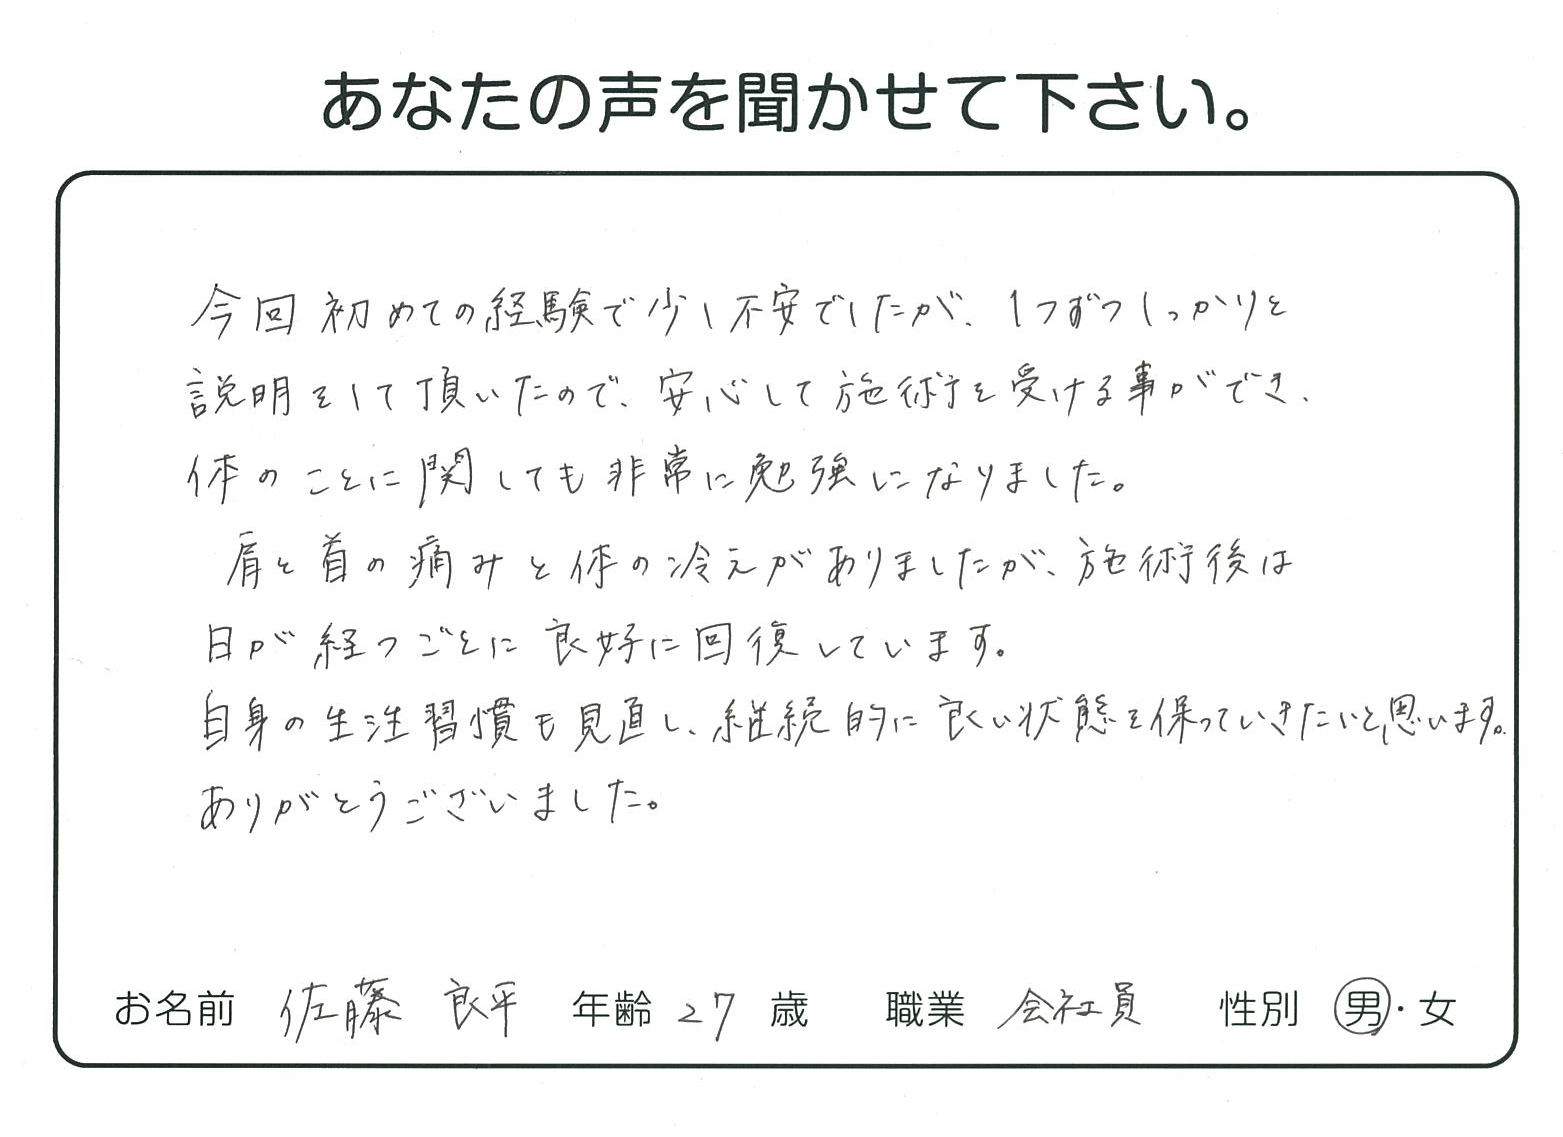 あなたの声を聞かせて下さい。
今回初めての経験で少し不安でしたが、1つずつしっかりと
説明をして頂いたので、安心して施術を受ける事ができ、
体のことに関しても非常に勉強になりました。
肩と首の痛みと体の冷えがありましたが、施術後は
日が経つごとに良好に回復しています。
自身の生活習慣も見直し、継続的に良い状態を保っていきたいと思います。
ありがとうございました。
お名前 佐藤 良平 年齢 27 歳 職業 会社員 性別 男・女